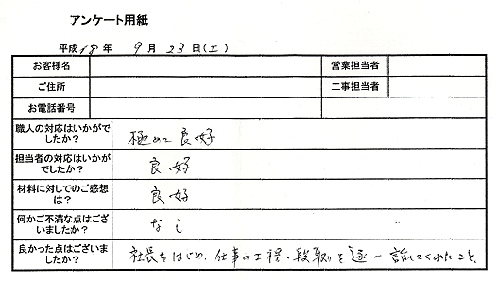 アンケート用紙
平成 18 年 9 月 23 日(土)
お客様名 営業担当者
ご住所 工事担当者
お電話番号
職人の対応はいかがで
したか? 極めて良好
担当者の対応はいかが
でしたか? 良好
材料に対してのご感想
は? 良好
何かご不満な点はござ
いましたか? なし
良かった点はございま
したか? 社長をはじめ、仕事の工程・段取りを逐一説してくれたこと、